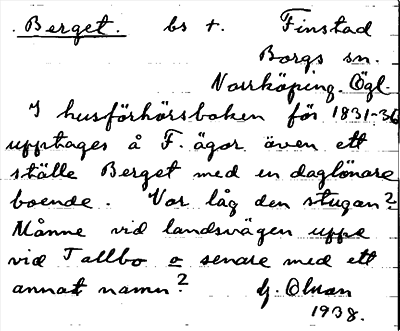 Berget. bs t. Finstad
Borgs sn.
Norrköping. Ögl.
I husförhörsboken för 1831-36
upptages å F. ägor även ett
ställe Berget med en daglönare
boende. Var låg den stugan?
Månne vid landsvägen uppe
vid Tallbo o senare med ett
annat namn? G. Olson
1938.